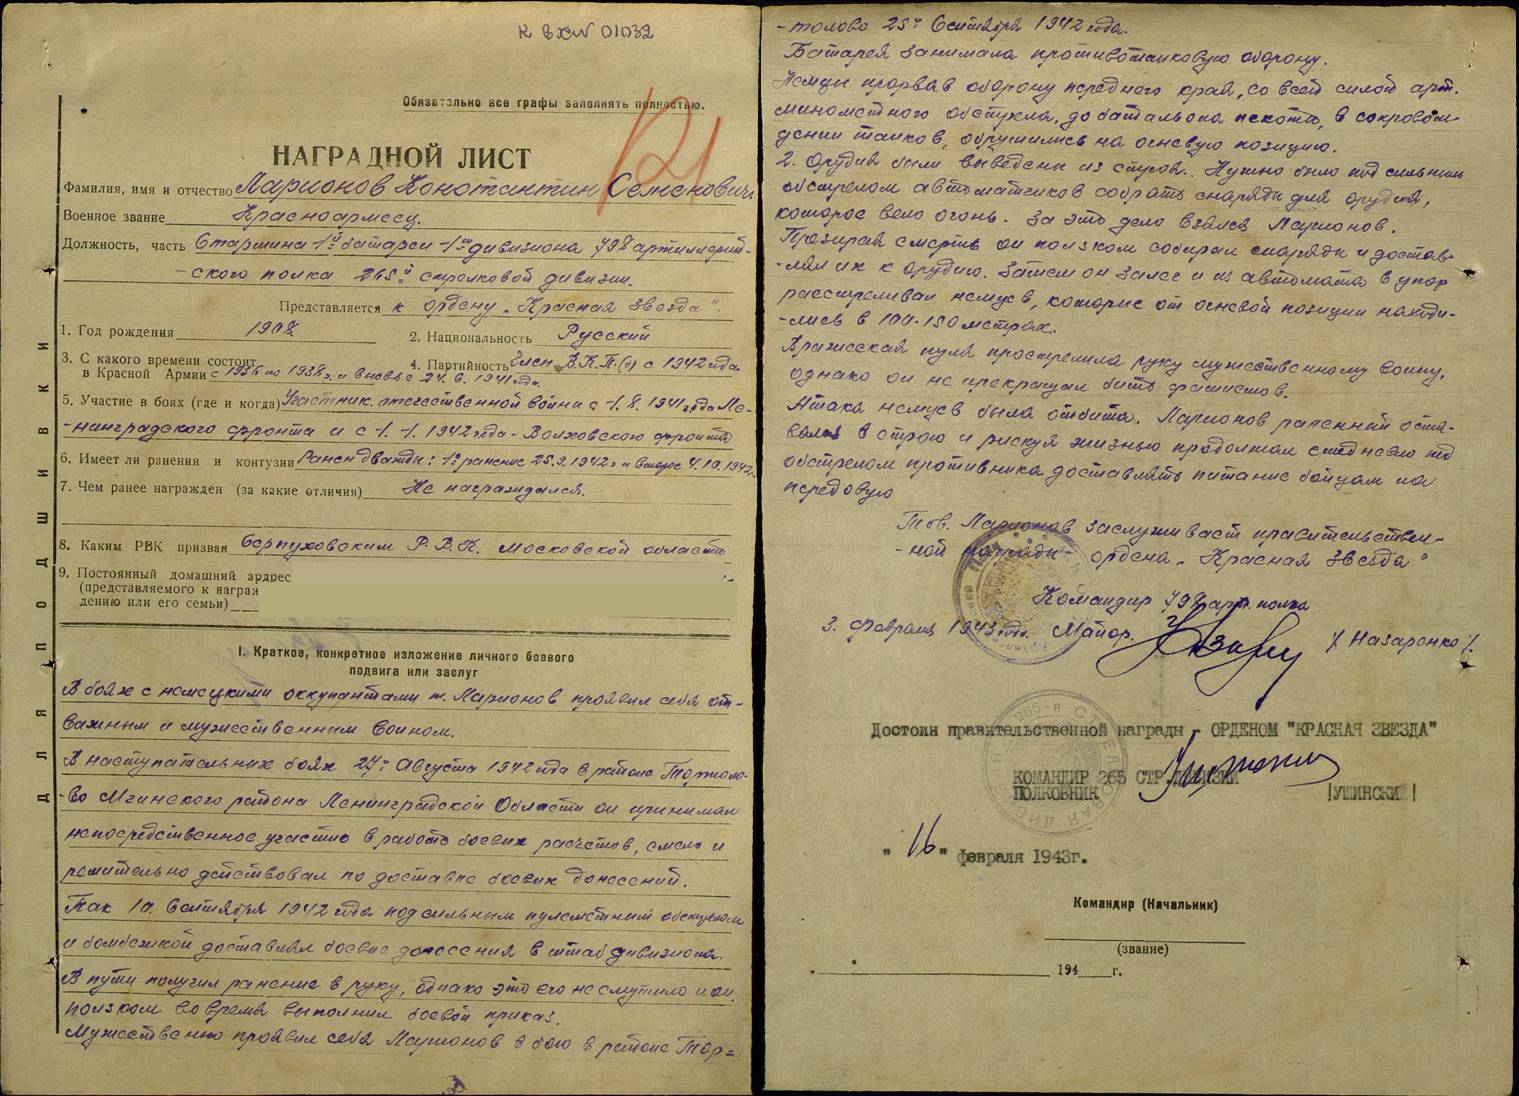 К вх№ 01032
Обязательно все графы заполнять полностью.
121
НАГРАДНОЙ ЛИСТ
Фамилия, имя и отчество Ларионов Константин Семенович
Военное звание Красноармеец.
Должность, часть Старшина 1й батареи 1го дивизиона 798 артиллерий-
-ского полка 265й стрелковой дивизии.
Представляется к ордену „Красная Звезда".
1. Год рождения 1908
2. Национальность Русский
3. С какого времени состоит
в Красной Армии с 1936 по 1938г. и вновь с 24.6.1941 года.
4. Партийность Член В.К.П.(б) с 1942 года
5. Участие в боях (где и когда) Участник отечественной войны с 1.8.1941 года Ле-
-нинградского фронта и с 1.1.1942 года - Волховского фронта
6. Имеет ли ранения и контузии Ранен дважды: 1е ранение 25.9.1942г и второе 4.10.1942г
7. Чем ранее награжден (за какие отличия) Не награждался.
8. Каким РВК призван Серпуховским Р.В.К. Московской область
9. Постоянный домашний ардрес
(представляемого к награж
дению или его семьи)
ДЛЯ ПОДШИВКИ
I. Краткое, конкретное изложение личного боевого
подвига или заслуг
В боях с немецкими оккупантами т. Ларионов проявил себя от-
важным и мужественным воином.
В наступательных боях 27го Августа 1942 года в районе Тортоло-
-во Мгинского района Ленинградской Области он принимал
непосредственное участие в работе боевых расчетов, смело и
решительно действовал по доставке боевых донесений.
Так 10. Сентября 1942 года под сильным пулеметным обстрелом
и бомбежкой доставлял боевые донесения в штаб дивизиона.
В пути получил ранение в руку, однако это его не смутило и он
ползком во время выполнил боевой приказ.
Мужественно проявил себя Ларионов в бою в районе Тор=
-толово 25го Сентября 1942 года.
Батарея занимала противотанковую оборону.
Немцы прорвав оборону переднего края, со всей силой арт.
минометного обстрела, до батальона пехоты, в сопровож-
дении танков, обрушились на огневую позицию.
2. Орудия были выведены из строя. Нужно было под сильным
обстрелом автоматчиков собрать снаряды для орудия,
которое вело огонь. За это дело взялся Ларионов.
Презирая смерть он ползком собирал снаряды и достав-
-лял их к орудию. Затем он залег и из автомата в упор
расстреливал немцев, которые от огневой позиции находи-
-лись в 100-150 метрах.
Вражеская пуля прострелила руку мужественному воину,
однако он не прекращал бить фашистов.
Атака немцев была отбита. Ларионов раненный оста-
вался в строю и рискуя жизнью продолжал ежедневно под
обстрелом противника доставлять питание бойцам на
передовую
Тов. Ларионов заслуживает правительствен-
-ной награды - ордена „Красная Звезда"
Командир 798 арт. полка
3. февраля 1943 года. Майор. / Назаренко /.
Достоин правительственной награды - ОРДЕНОМ "КРАСНАЯ ЗВЕЗДА"
КОМАНДИР 265 СТР. ДИВИЗИИ
ПОЛКОВНИК /УШИНСКИЙ/
" 16 " февраля 1943г.
Командир (Начальник)
(звание)
194 г.